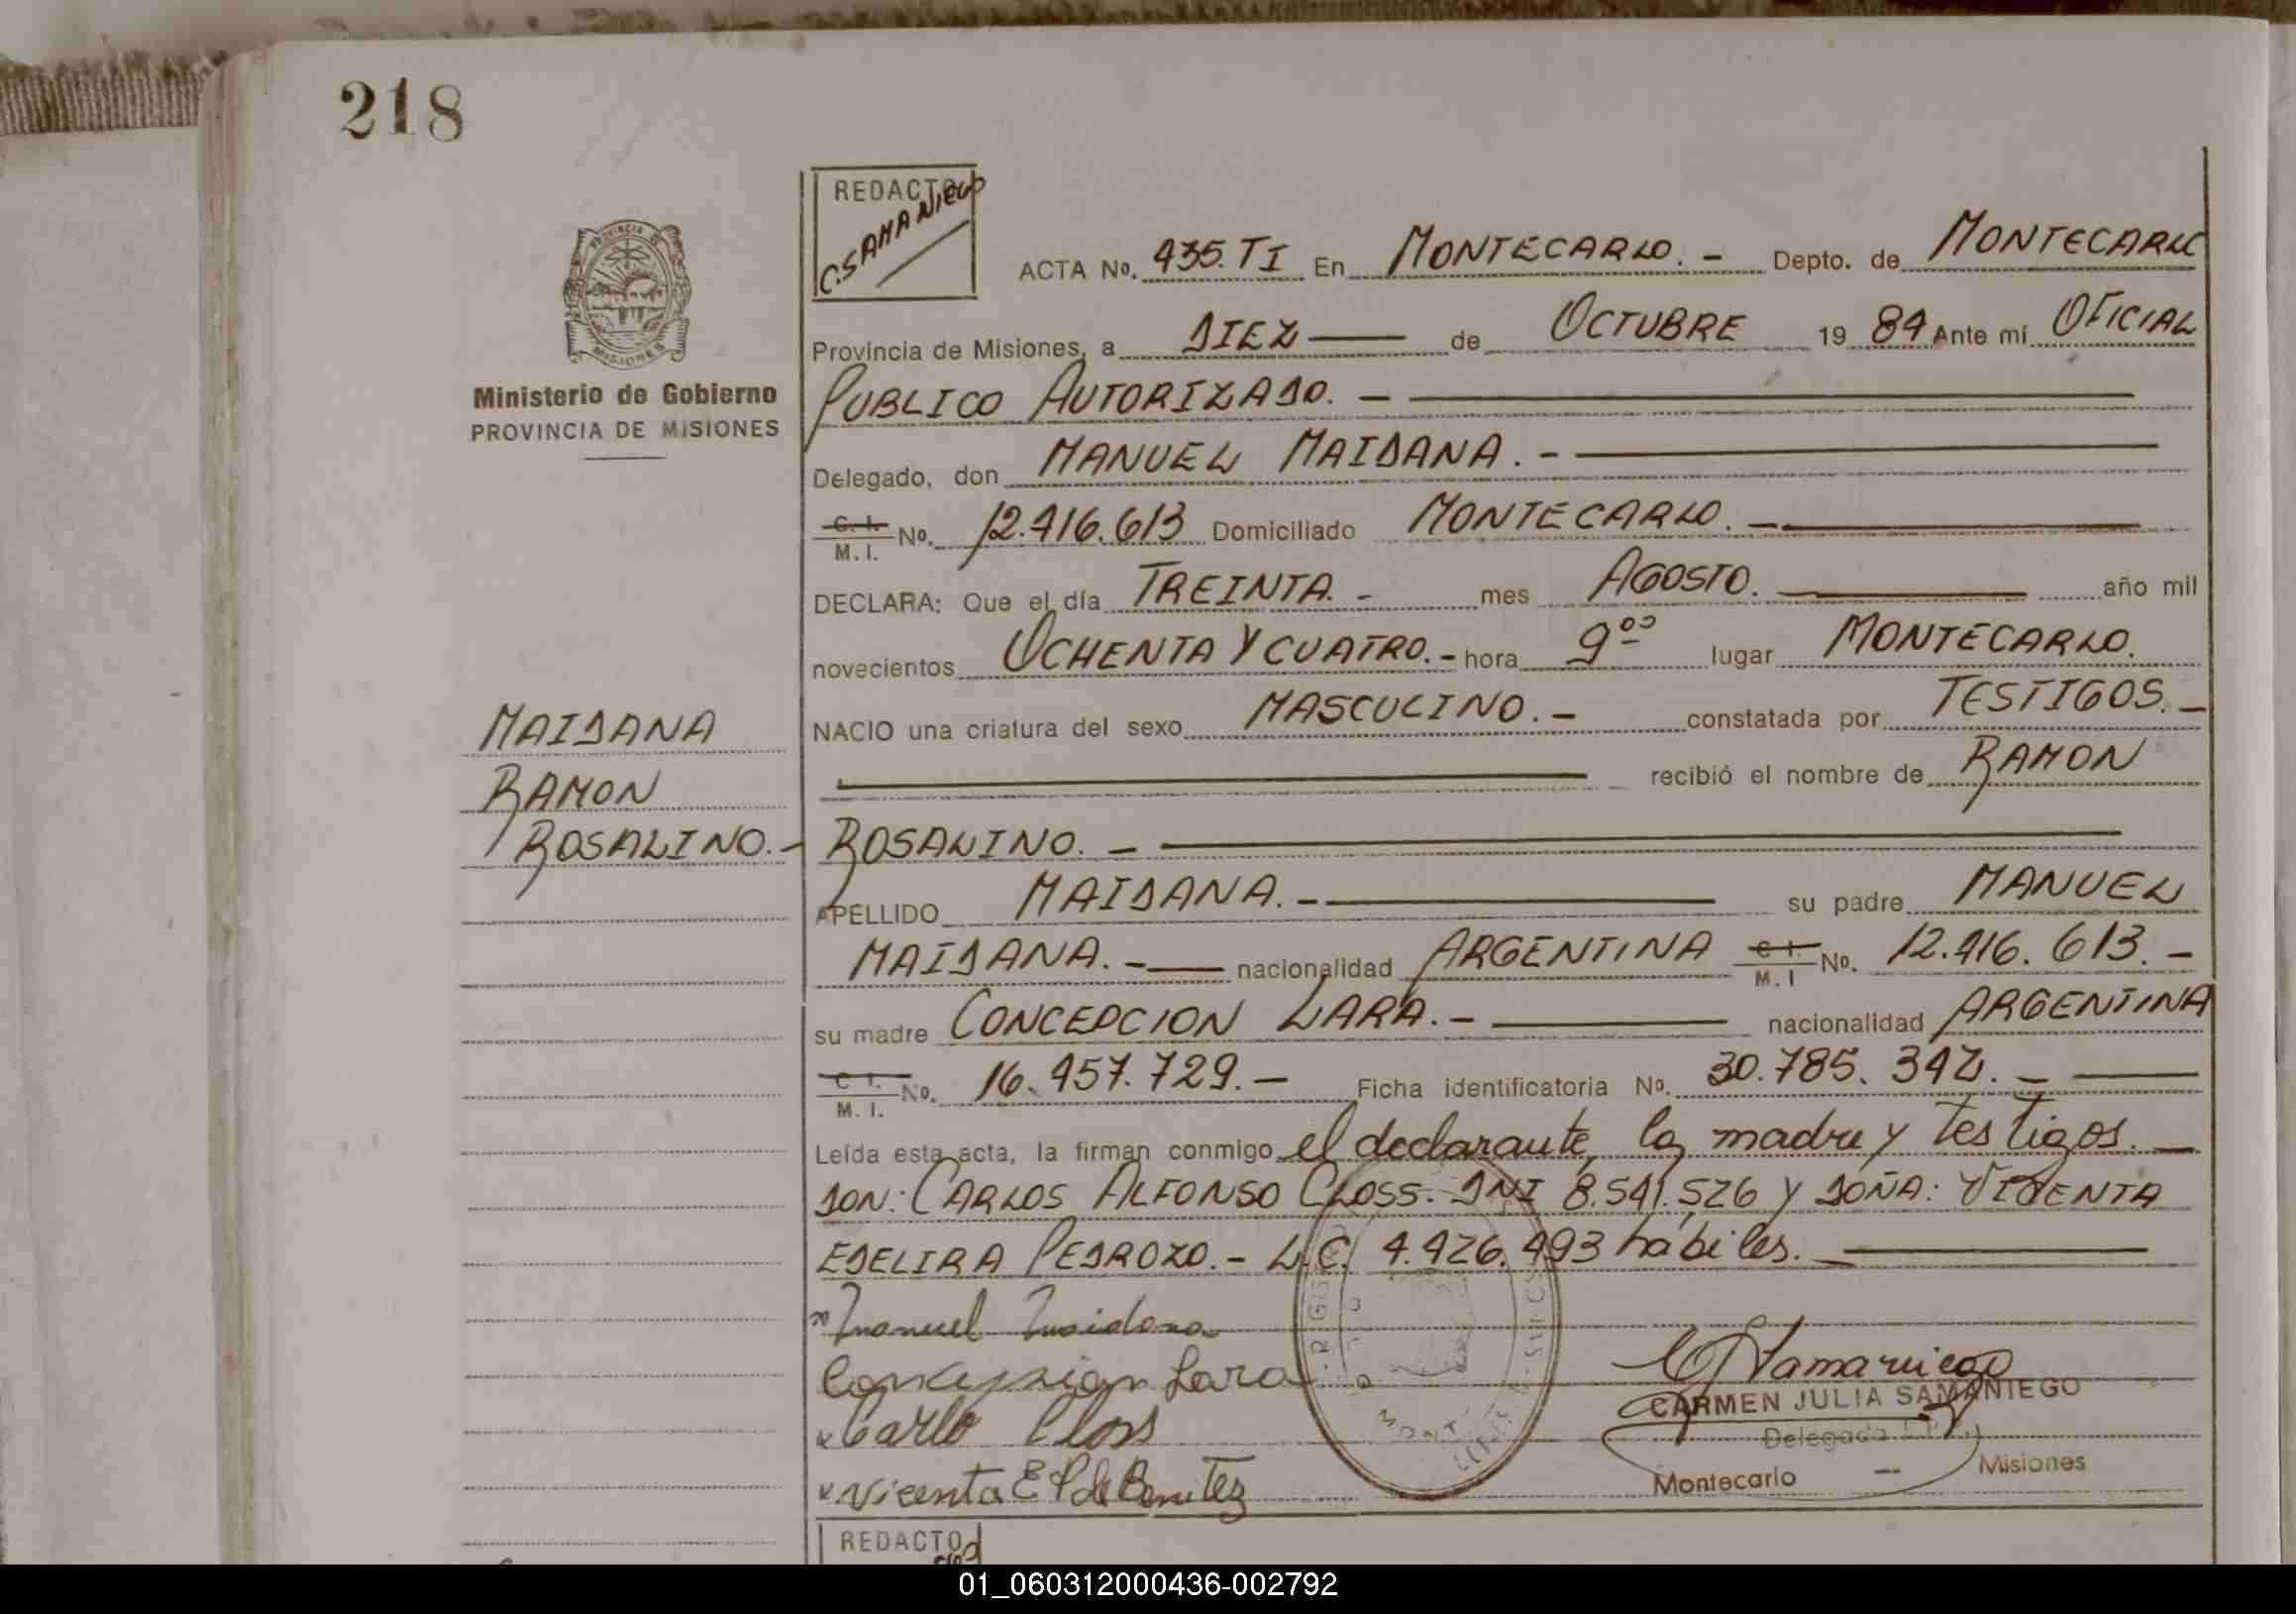 218
REDACTO
C.SAMANIEGO
ACTA No. 435.TI En MONTECARLO. - Depto. de MONTECARLO
Provincia de Misiones, a DIEZ de OCTUBRE 1984 Ante mí OFICIAL
PUBLICO AUTORIZADO. -
PROVINCIA DE MISIONES
Ministerio de Gobierno
PROVINCIA DE MISIONES
Delegado, don MANUEL MAIDANA. -
C. I. / M. I. No. 12.416.613 Domiciliado MONTECARLO. -
DECLARA: Que el día TREINTA. - mes AGOSTO. año mil
novecientos OCHENTA Y CUATRO. - hora 9 oo lugar MONTECARLO.
NACIO una criatura del sexo MASCULINO. - constatada por TESTIGOS. -
recibió el nombre de RAMON
ROSALINO. -
MAIDANA
RAMON
ROSALINO. -
APELLIDO MAIDANA. - su padre MANUEL
MAIDANA. - nacionalidad ARGENTINA C. I. / M. I No. 12.416.613. -
su madre CONCEPCION LARA. - nacionalidad ARGENTINA
C. I. / M. I. No. 16.457.729. - Ficha identificatoria No. 30.785.342. -
Leída esta acta, la firman conmigo el declarante, la madre y testigos. -
DON: CARLOS ALFONSO CLOSS. DNI 8.541.526 Y DOÑA: VICENTA
EDELIRA PEDROZO. - L.C. 4.426.493 hábiles. -
Manuel Maidana
Concepsion Lara
Carlo Closs
Vicenta E P de Benitez
C J Samaniego
CARMEN JULIA SAMANIEGO
Delegada
Montecarlo - Misiones
REDACTO
01_060312000436-002792